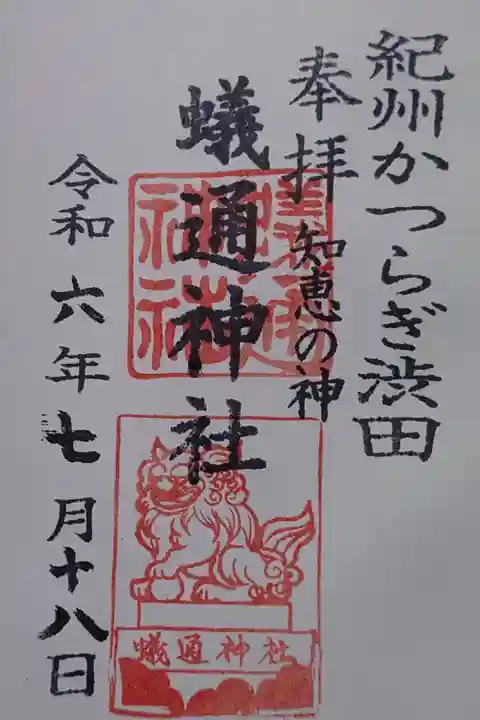 紀州かつらぎ渋田
奉拝 知恵の神
蟻通神社
令和六年七月十八日
蟻通神社